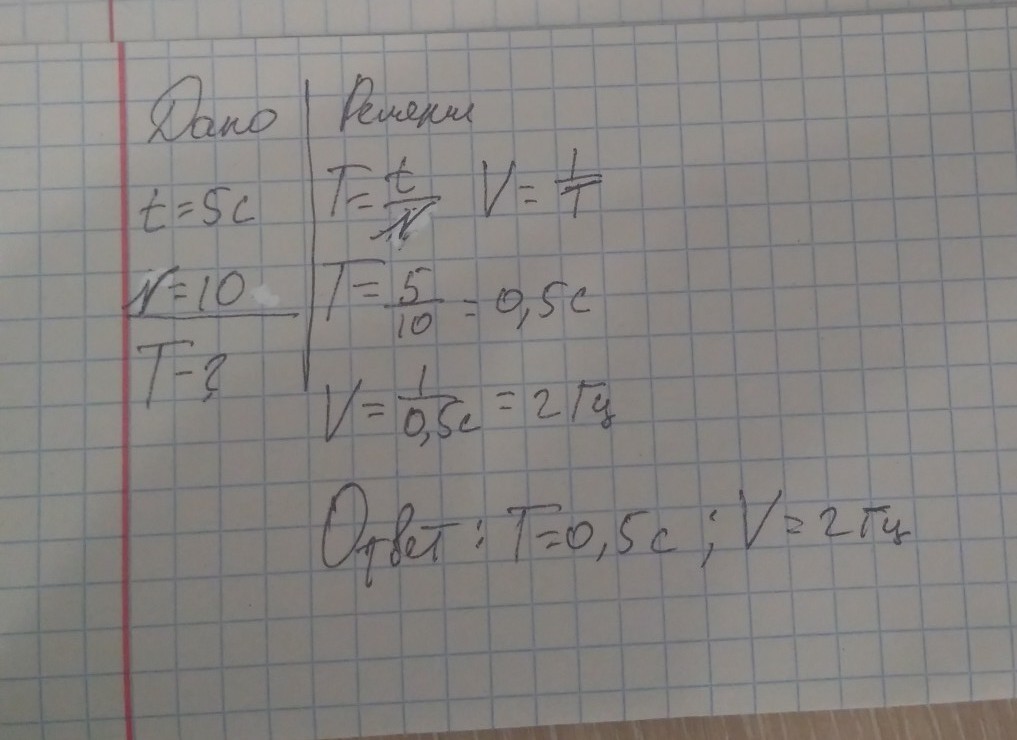 Дано
t=5с
N=10
T-?
Решение
T=t/N V=1/T
T=5/10=0,5с
V=1/0,5с=2Гц
Ответ: T=0,5с; V=2Гц